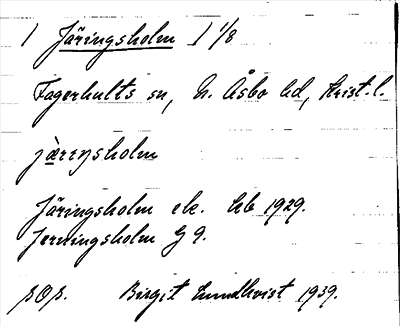 1 Järingsholm 1 1/8
Fagerhults sn, N. Åsbo hd, Krist. l.
jæ̀riŋsholm
Järingsholm ek. kb 1929.
Jerningsholm G 9.
sOs. Birgit Lundkvist 1939.